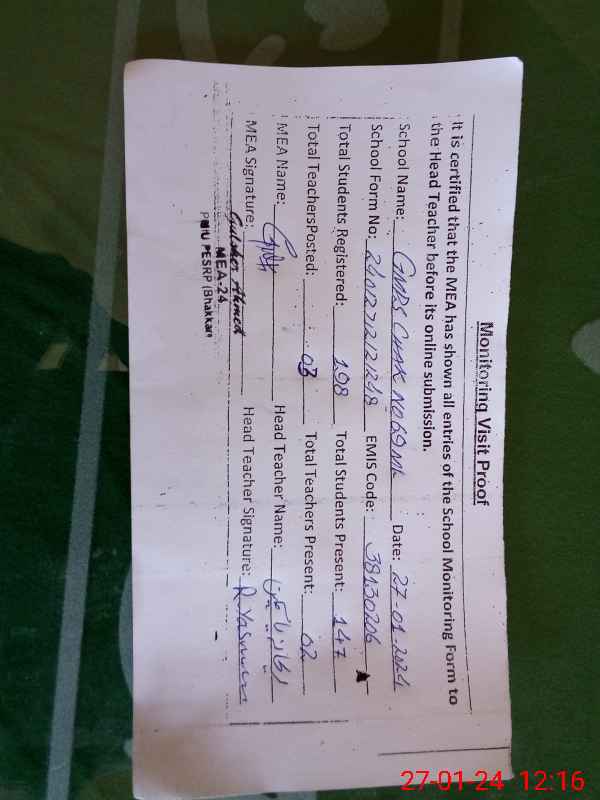 Monitoring Visit Proof
It is certified that the MEA has shown all entries of the School Monitoring Form to
the Head Teacher before its online submission.
School Name: GMPS CHAK NO 69 ML Date: 27-01-2024
School Form No: EMIS Code: 38130206
Total Students Registered: 198 Total Students Present: 147
Total TeachersPosted: 03 Total Teachers Present: 02
MEA Name: Head Teacher Name:
MEA Signature: Gulsher Ahmed Head Teacher Signature: R.Yasmeen
MEA-24
PMIU PESRP (Bhakkar)
27-01-24 12:16